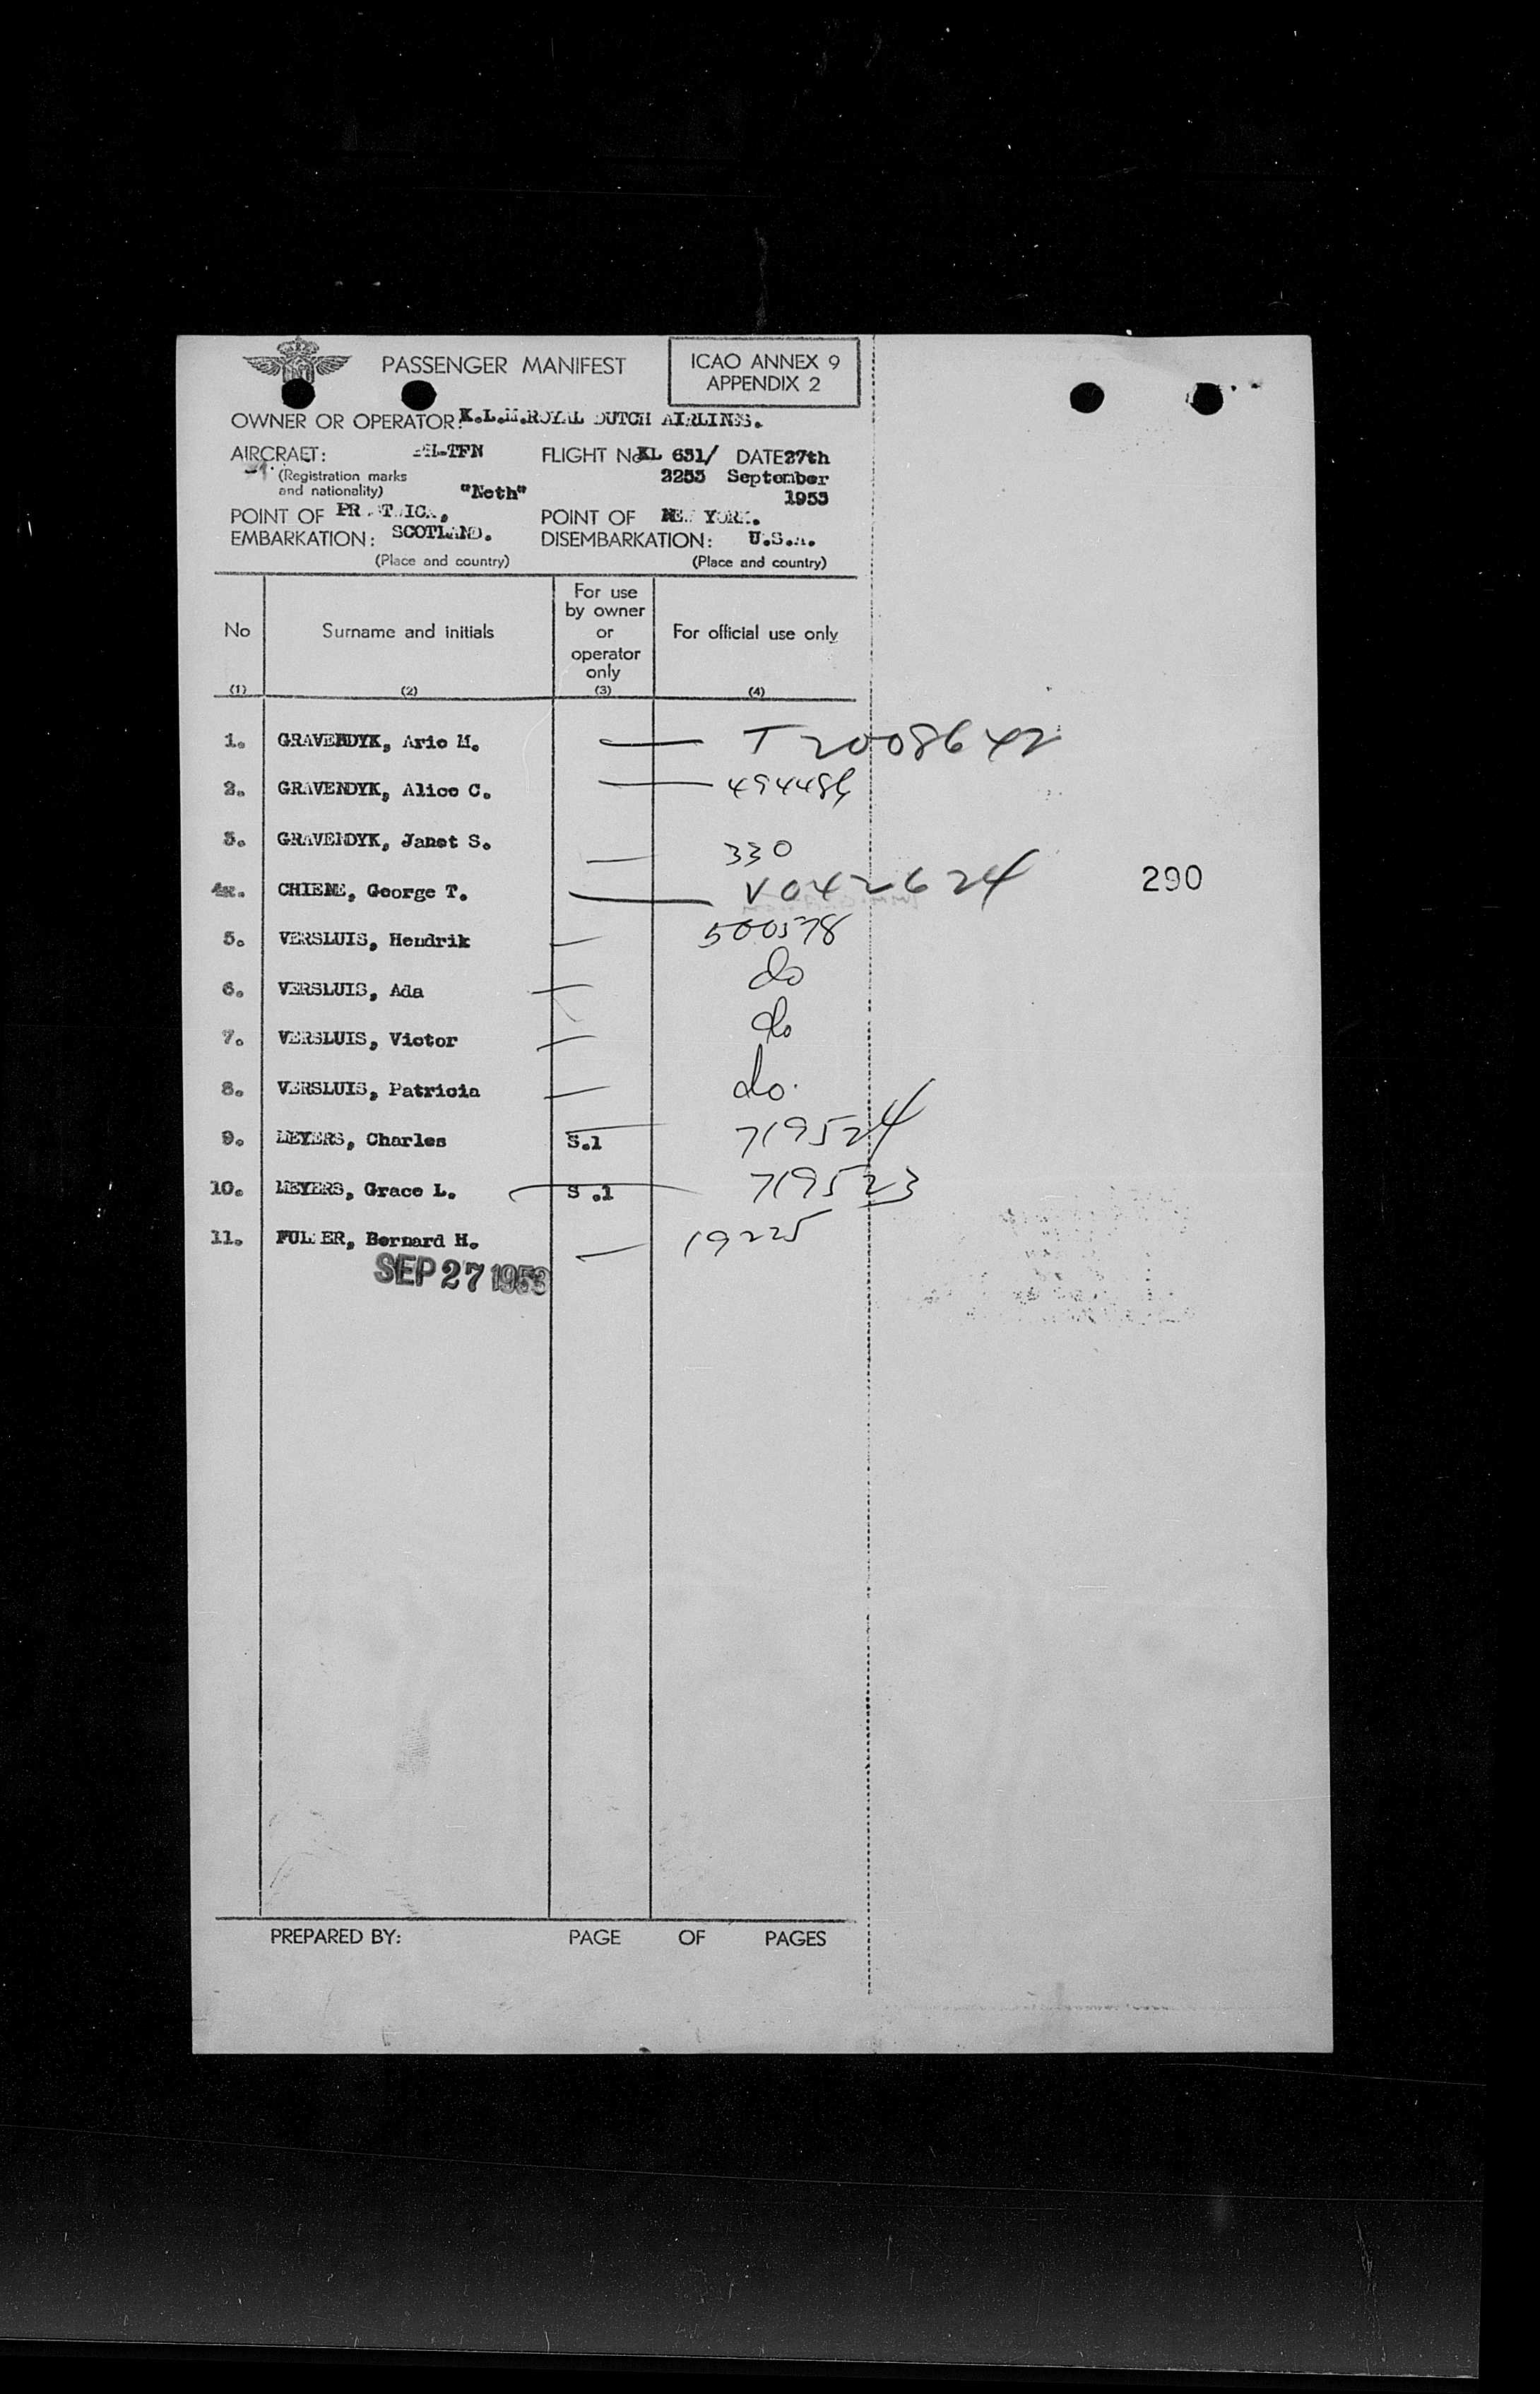 PASSENGER MANIFEST
ICAO ANNEX 9
APPENDIX 2
OWNER OR OPERATOR: K.L.M. ROYAL DUTCH AIRLINES.
AIRCRAFT: PH-TFN FLIGHT No KL 631/ DATE 27th
(Registration marks 2253 September
and nationality) "Neth" 1953
POINT OF PRESTWICK, POINT OF NEW YORK.
EMBARKATION: SCOTLAND. DISEMBARKATION: U.S.A.
(Place and country) (Place and country)
No Surname and initials For use by owner or operator only For official use only
(1) (2) (3) (4)
1. GRAVENDYK, Arie M. — T2008642
2. GRAVENDYK, Alice C. —
3. GRAVENDYK, Janet S. — 330
4. CHIENE, George T. — V042624
290
5. VERSLUIS, Hendrik — 500578
6. VERSLUIS, Ada — do
7. VERSLUIS, Victor — do
8. VERSLUIS, Patricia — do.
9. MEYERS, Charles S.1 719524
10. MEYERS, Grace L. S.1 719523
11. Bernard H. — 19225
SEP 27 1953
PREPARED BY: PAGE OF PAGES